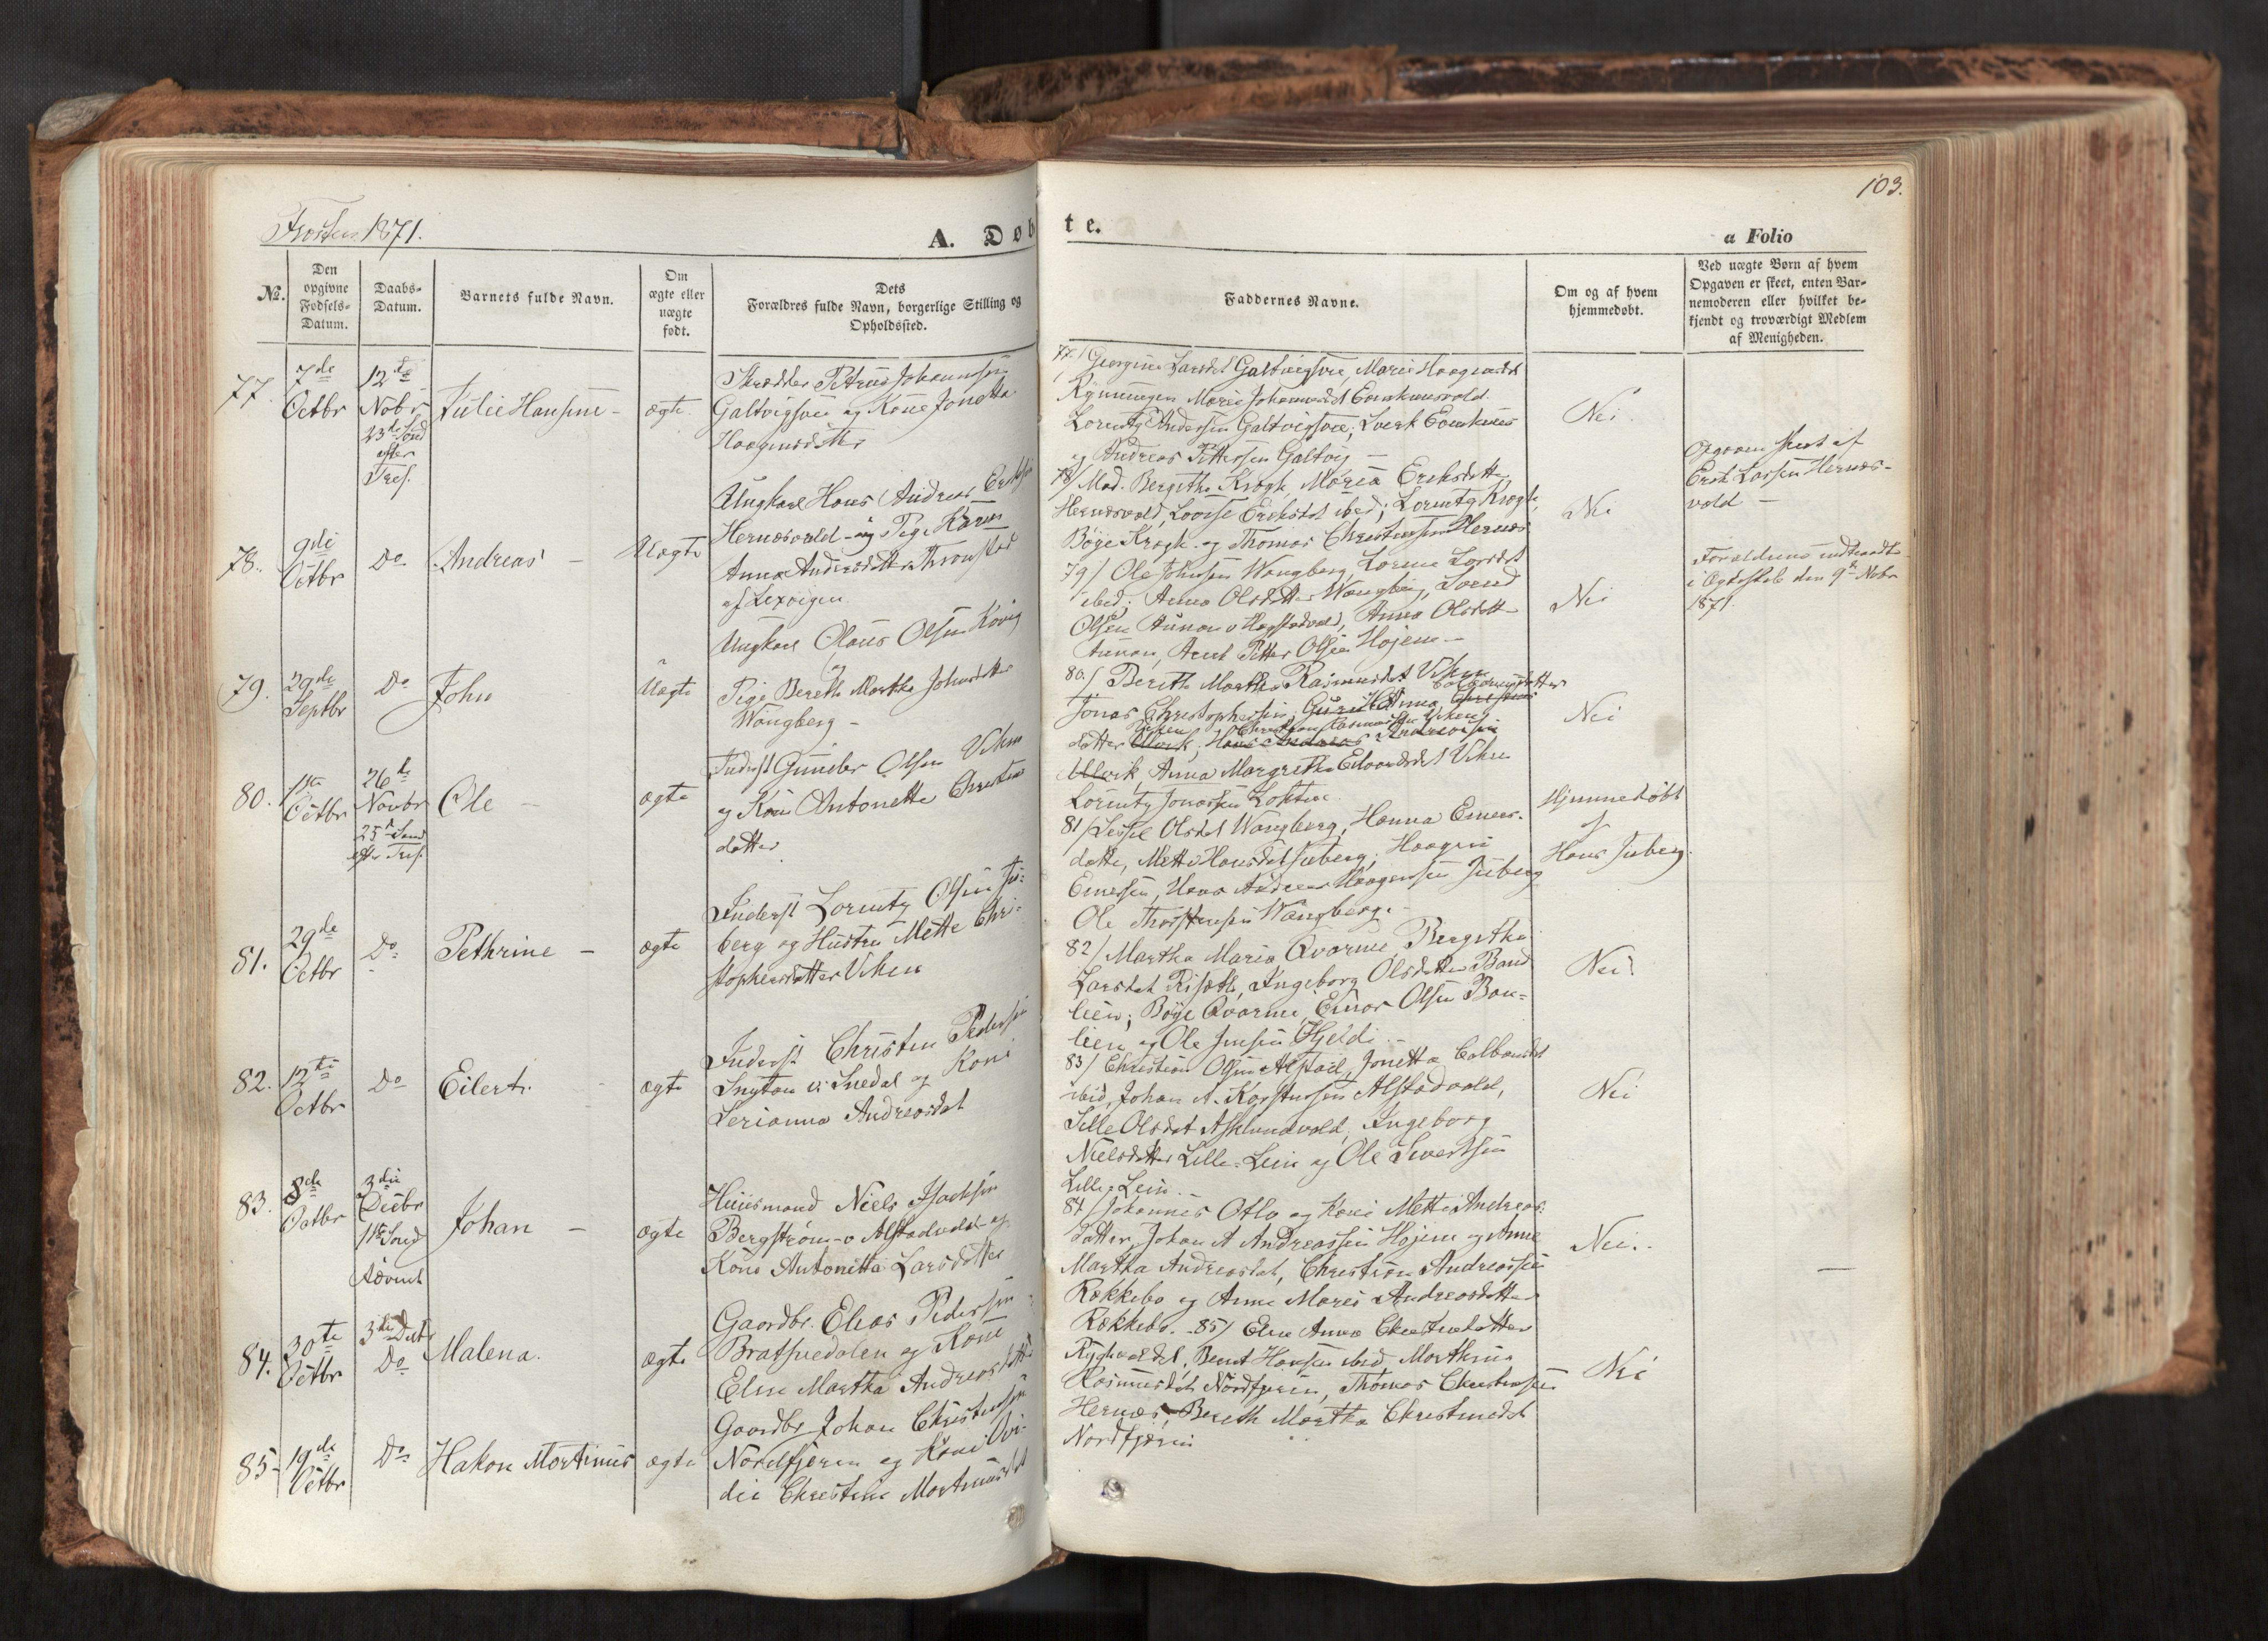 103.
Frosten 1871.
A. Døbte.
a Folio
№.
Den opgivne Fødsels-Datum.
Daabs-Datum.
Barnets fulde Navn.
Om ægte eller uægte født.
Dets Forældres fulde Navn, borgerlige Stilling og Opholdssted.
Faddernes Navne.
Om og af hvem hjemmedøbt.
Ved uægte Børn af hvem Opgaven er skeet, enten Barnemoderen eller hvilket bekjendt og troværdigt Medlem af Menigheden.
77.
7de
Octbr
12te
Nobr
23de Sönd
efter
Tref.
Julie Hansine -
ægte
Skrædder Petrus Johannsen
Galtvigsvee og Kone Jonetta
Haagensdtter
77/ Georgine Larsdt Galtvigsvee, Marie Haagensdt
Rønningen Marie Johannesdt
Lorentz Andersen Galtvigsvee,
og Andreas Pettersen Galtvig -
Nei.
78.
9de
Octbr
Do
Andreas -
Uægte
Ungkarl Hans Andreas Eriksen
Hernæsvald og Pige Karen
Anna Andersdatter Thronstad
af Lexvigen
78/ Mad. Bergitha Krogh, Maria Eriksdatter
Hernæsvald, Lovise Eriksdt ibid; Lorentz Krogh,
Böye Krogh og Thomas Christensen Hernæs
Nei
Opgaven skeet af
Erik Larsen Hernæs-
vald -
Forældrene indtraadte
i Ægteskab den 9de Nobr
1871.
79.
29de
Septbr
Do
John
Uægte
Ungkarl Olaus Olsen Kövig
og
Pige Bereth Martha Johnsdatter
Wangberg -
79/ Ole Johnsen Wangberg, Lorns Larsdt
ibid; Anna Olsdatter Wangberg,
Olsen Aunan Anna Olsdatt
Aunan, Arnt Petter Olsen Hojem -
Nei
80.
1ste
Octbr
26de
Novbr
25de Sönd
efter Tref.
Ole -
ægte
Inderst Gunder Olsen Viken
og Kone Antonette Christens
datter
80/ Bereth Martha Rasmusdt Viken
Jonas Christophersen, Anna
datter
Ulvik, Anna Margretha Edvardsdt Viken
Lorentz Jonassen Lohten
Nei
81.
29de
Octbr
Do
Pethrine -
ægte
Inderst Lorentz Olsen Ju-
berg og Hustru Mette Chri-
stophersdatter Viken
81/ Sissel Olsdt Wangberg, Hanna Einers-
datte, Mette Hansdat Juberg; Haagen
Einersen, Hans Andreas Haagensen Juberg
Ole Thorstensen Wangberg. -
Hjemmedöbt
af
Hans Juberg.
82.
12te
Octbr
Do
Eilert.
ægte
Inderst Christen Pedersen
i Snedal og Kone
Serianna Andreasdat
82/ Martha Maria Qvarme, Bergitha
Larsdat Risæth, Ingeborg Olsdatter Baus
lien; Böye Qvarme, Einar Olsen Bau-
lien og Ole Jensen Hjelde
Nei.
83.
8de
Octbr
3die
Decbr
1ste Sönd
Advent
Johan -
ægte
Huusmand Niels Isachsen
Bergström o Alstadvald og
Kone Antonetta Larsdatter
83/ Christian Olsen Alstad, Jonetta Colbansdt
ibid, Johan A. Karstensen Alstadvald,
Sille Olsdat Asklundvald, Ingeborg
Nielsdatter Lille-Lein og Ole Sivertsen
Lille-Lein -
Nei
84.
30te
Octbr
3die Decb
Do
Malena.
ægte
Gaardbr. Elias Pedersen
Bratsvedalen og Kone
Elen Martha Andreasdatter
84/ Johannes Otlo og Kone Mette Andreas-
datter, Johan A Andreassen Hojem og Anne
Martha Andreasdat, Christian Andreassen
Rækkebo og Anne Marie Andreasdatter
Rækkebo. -
Nei. -
85.
19de
Octbr
Do
Hakon Martinus
ægte
Gaardbr Johan Christensen
Nordfjæren og Kone Ovi-
die Christine Martinusdt
85/ Elen Anna Christensdatter
Ryghvaldet, Bernt Hansen ibid Marthine
Rasmusdat Nordfjæren, Thomas Christensen
Hernæs, Bereth Martha Christensdt
Nordfjæren
Nei